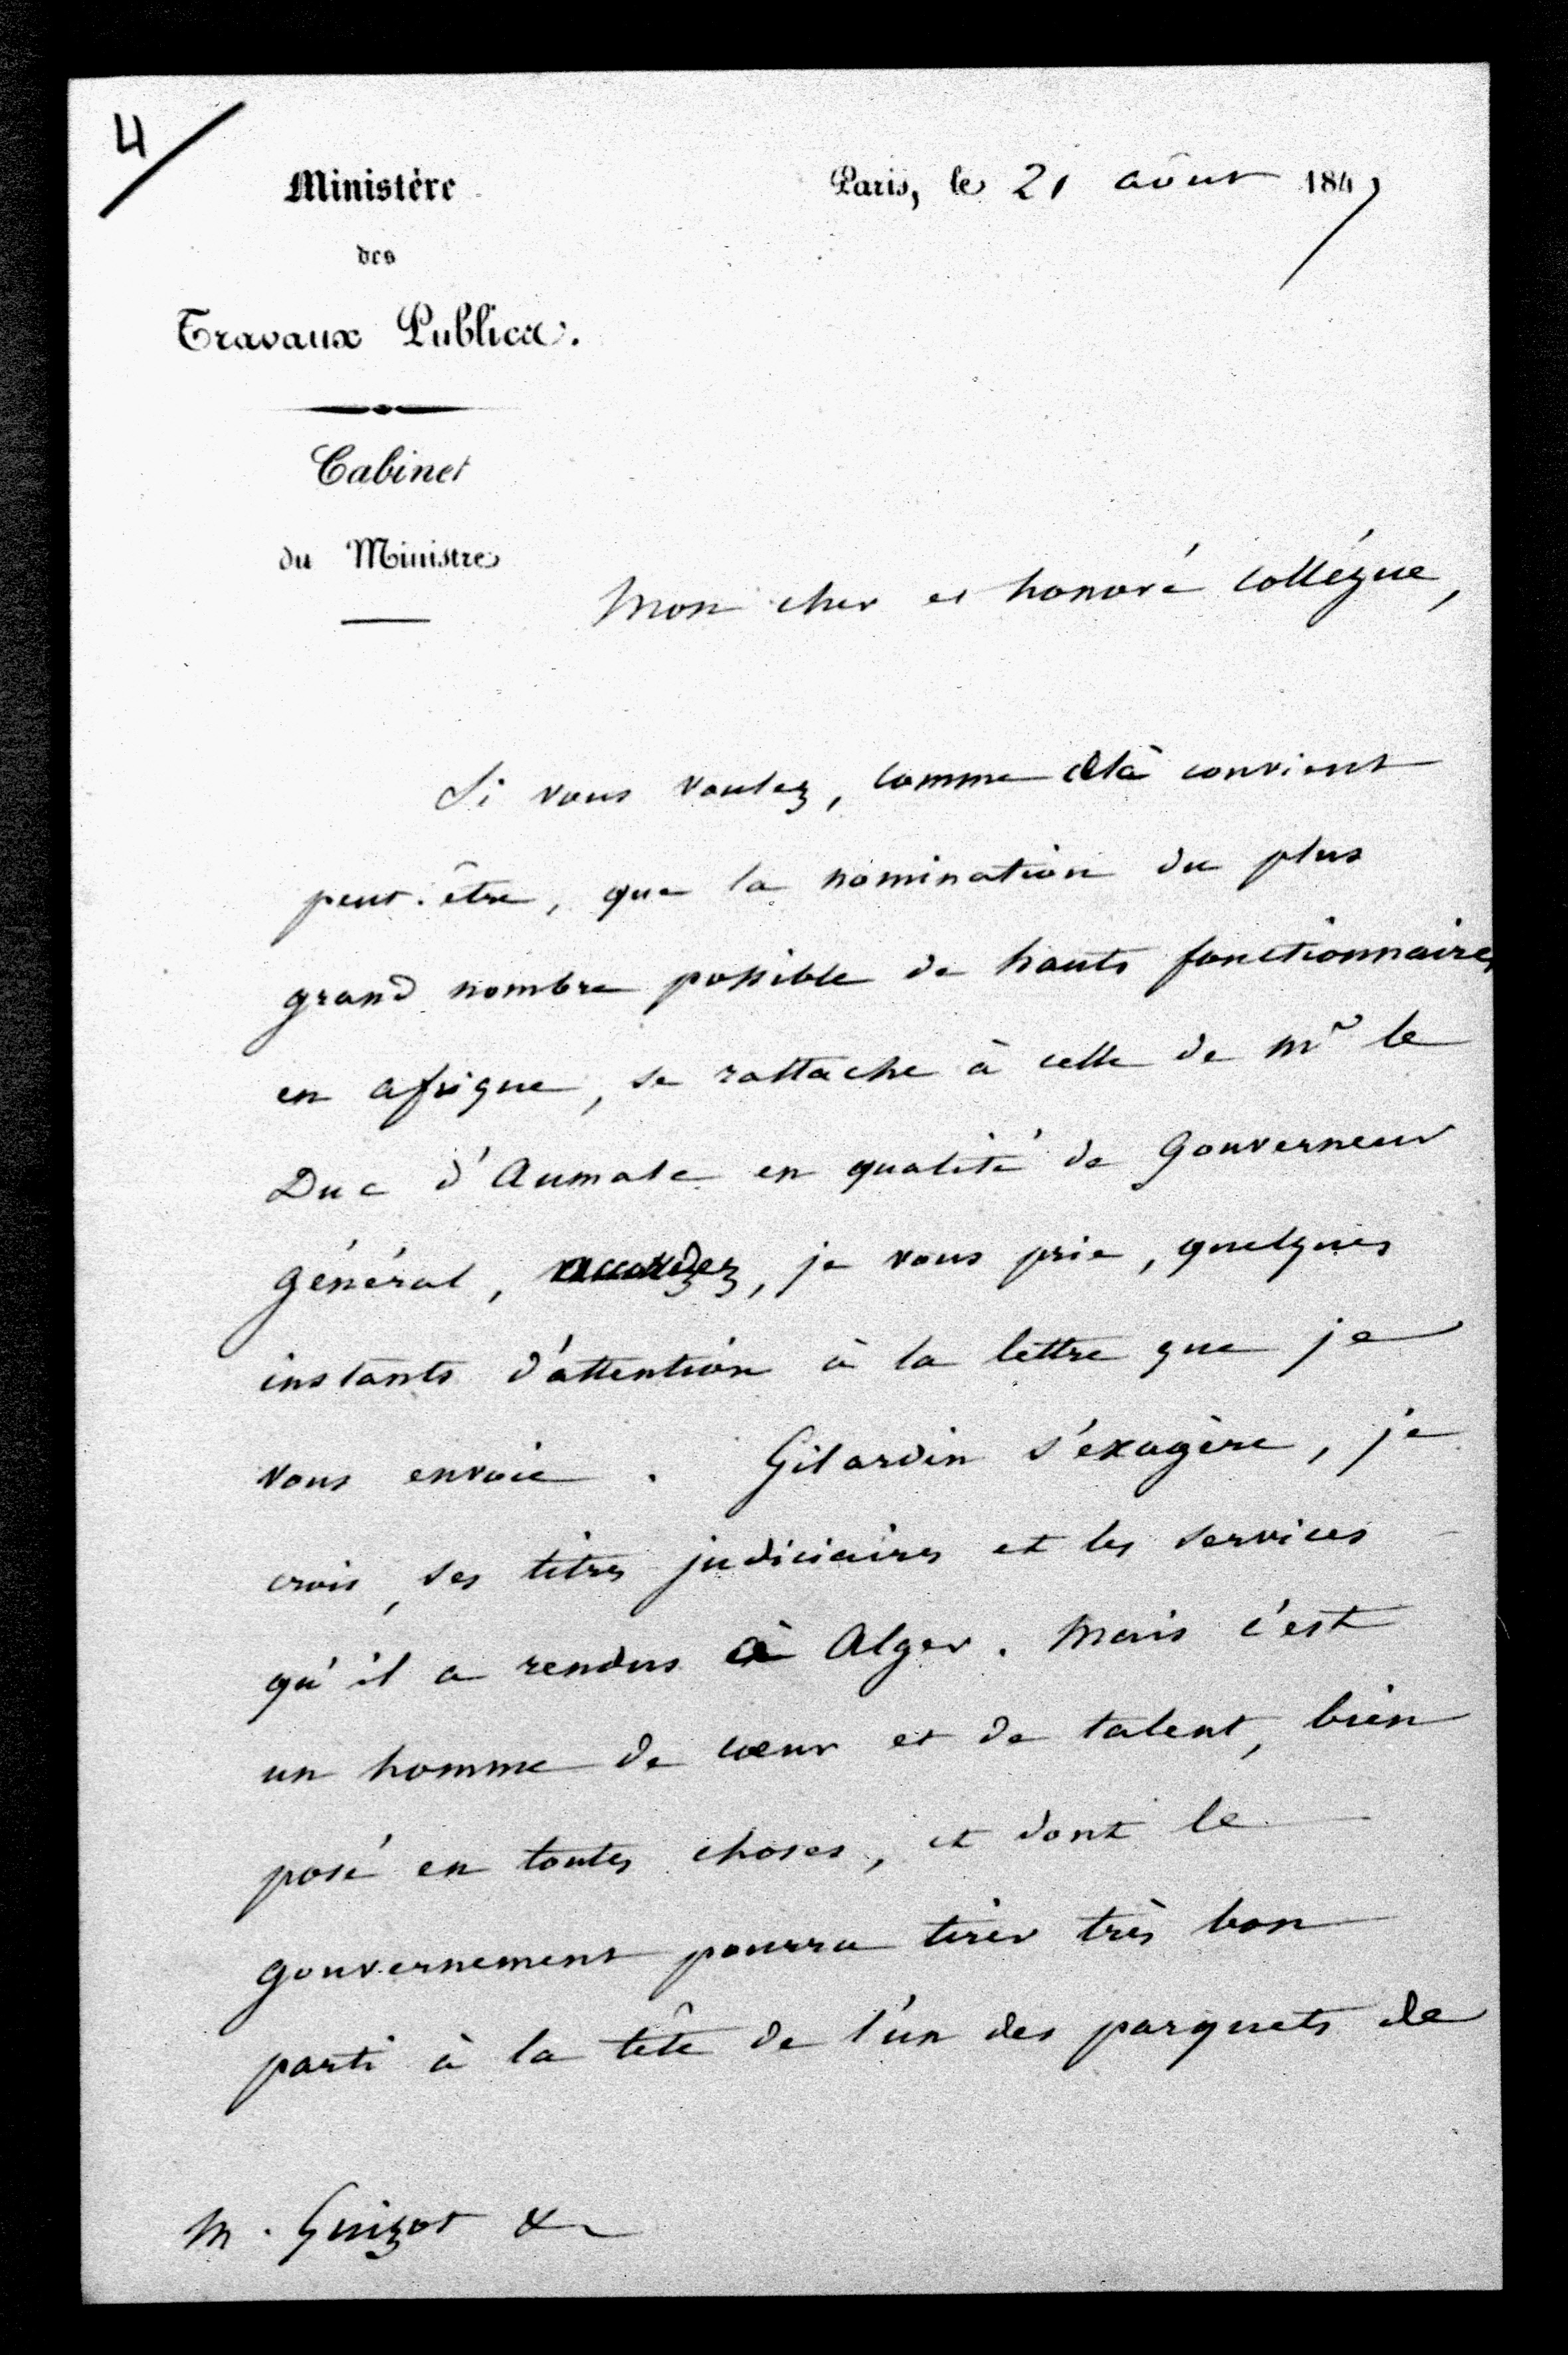 4/
Ministère
des
Travaux Publics.
Cabinet
du Ministre
Paris, le 21 août 1847
Mon cher et honoré collégue,
Si vous voulez, comme celà convient
peut-être, que la nomination du plus
grand nombre possible de hauts fonctionnaires
en afrique, se rattache à celle de Mr le
Duc d'Aumale en qualité de Gouverneur
Général, accordez, je vous prie, quelques
instants d'attention à la lettre que je
vous envoie. Gilardin s'exagère, je
crois, ses titres judiciaires et les services
qu'il a rendus à Alger. Mais c'est
un homme de cœur et de talent, bien
posé en toutes choses, et dont le
gouvernement pourra tirer très bon
parti à la tête de l'un des parquets de
M. Guizot &a